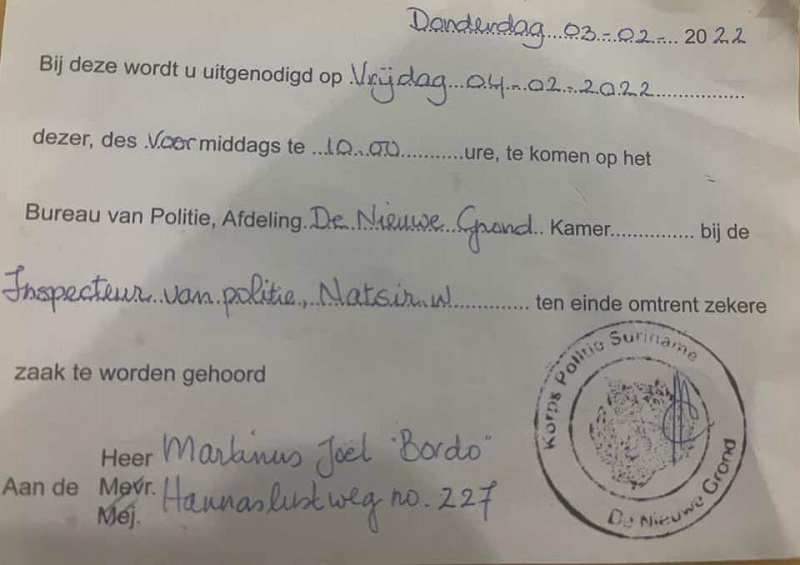 Donderdag...03.-.02.-... 2022
Bij deze wordt u uitgenodigd op .Vrijdag...04.-.02.-.2022...............
dezer, des .Voor middags te ...10..00...........ure, te komen op het
Bureau van Politie, Afdeling. De Nieuwe Grond.. Kamer............... bij de
Inspecteur..van.politie., Natsir.w............. ten einde omtrent zekere
zaak te worden gehoord
Heer Martinus Joël "Bordo"
Aan de Mevr. Hannaslustweg no. 227
Mej.
Korps Politie Suriname
De Nieuwe Grond